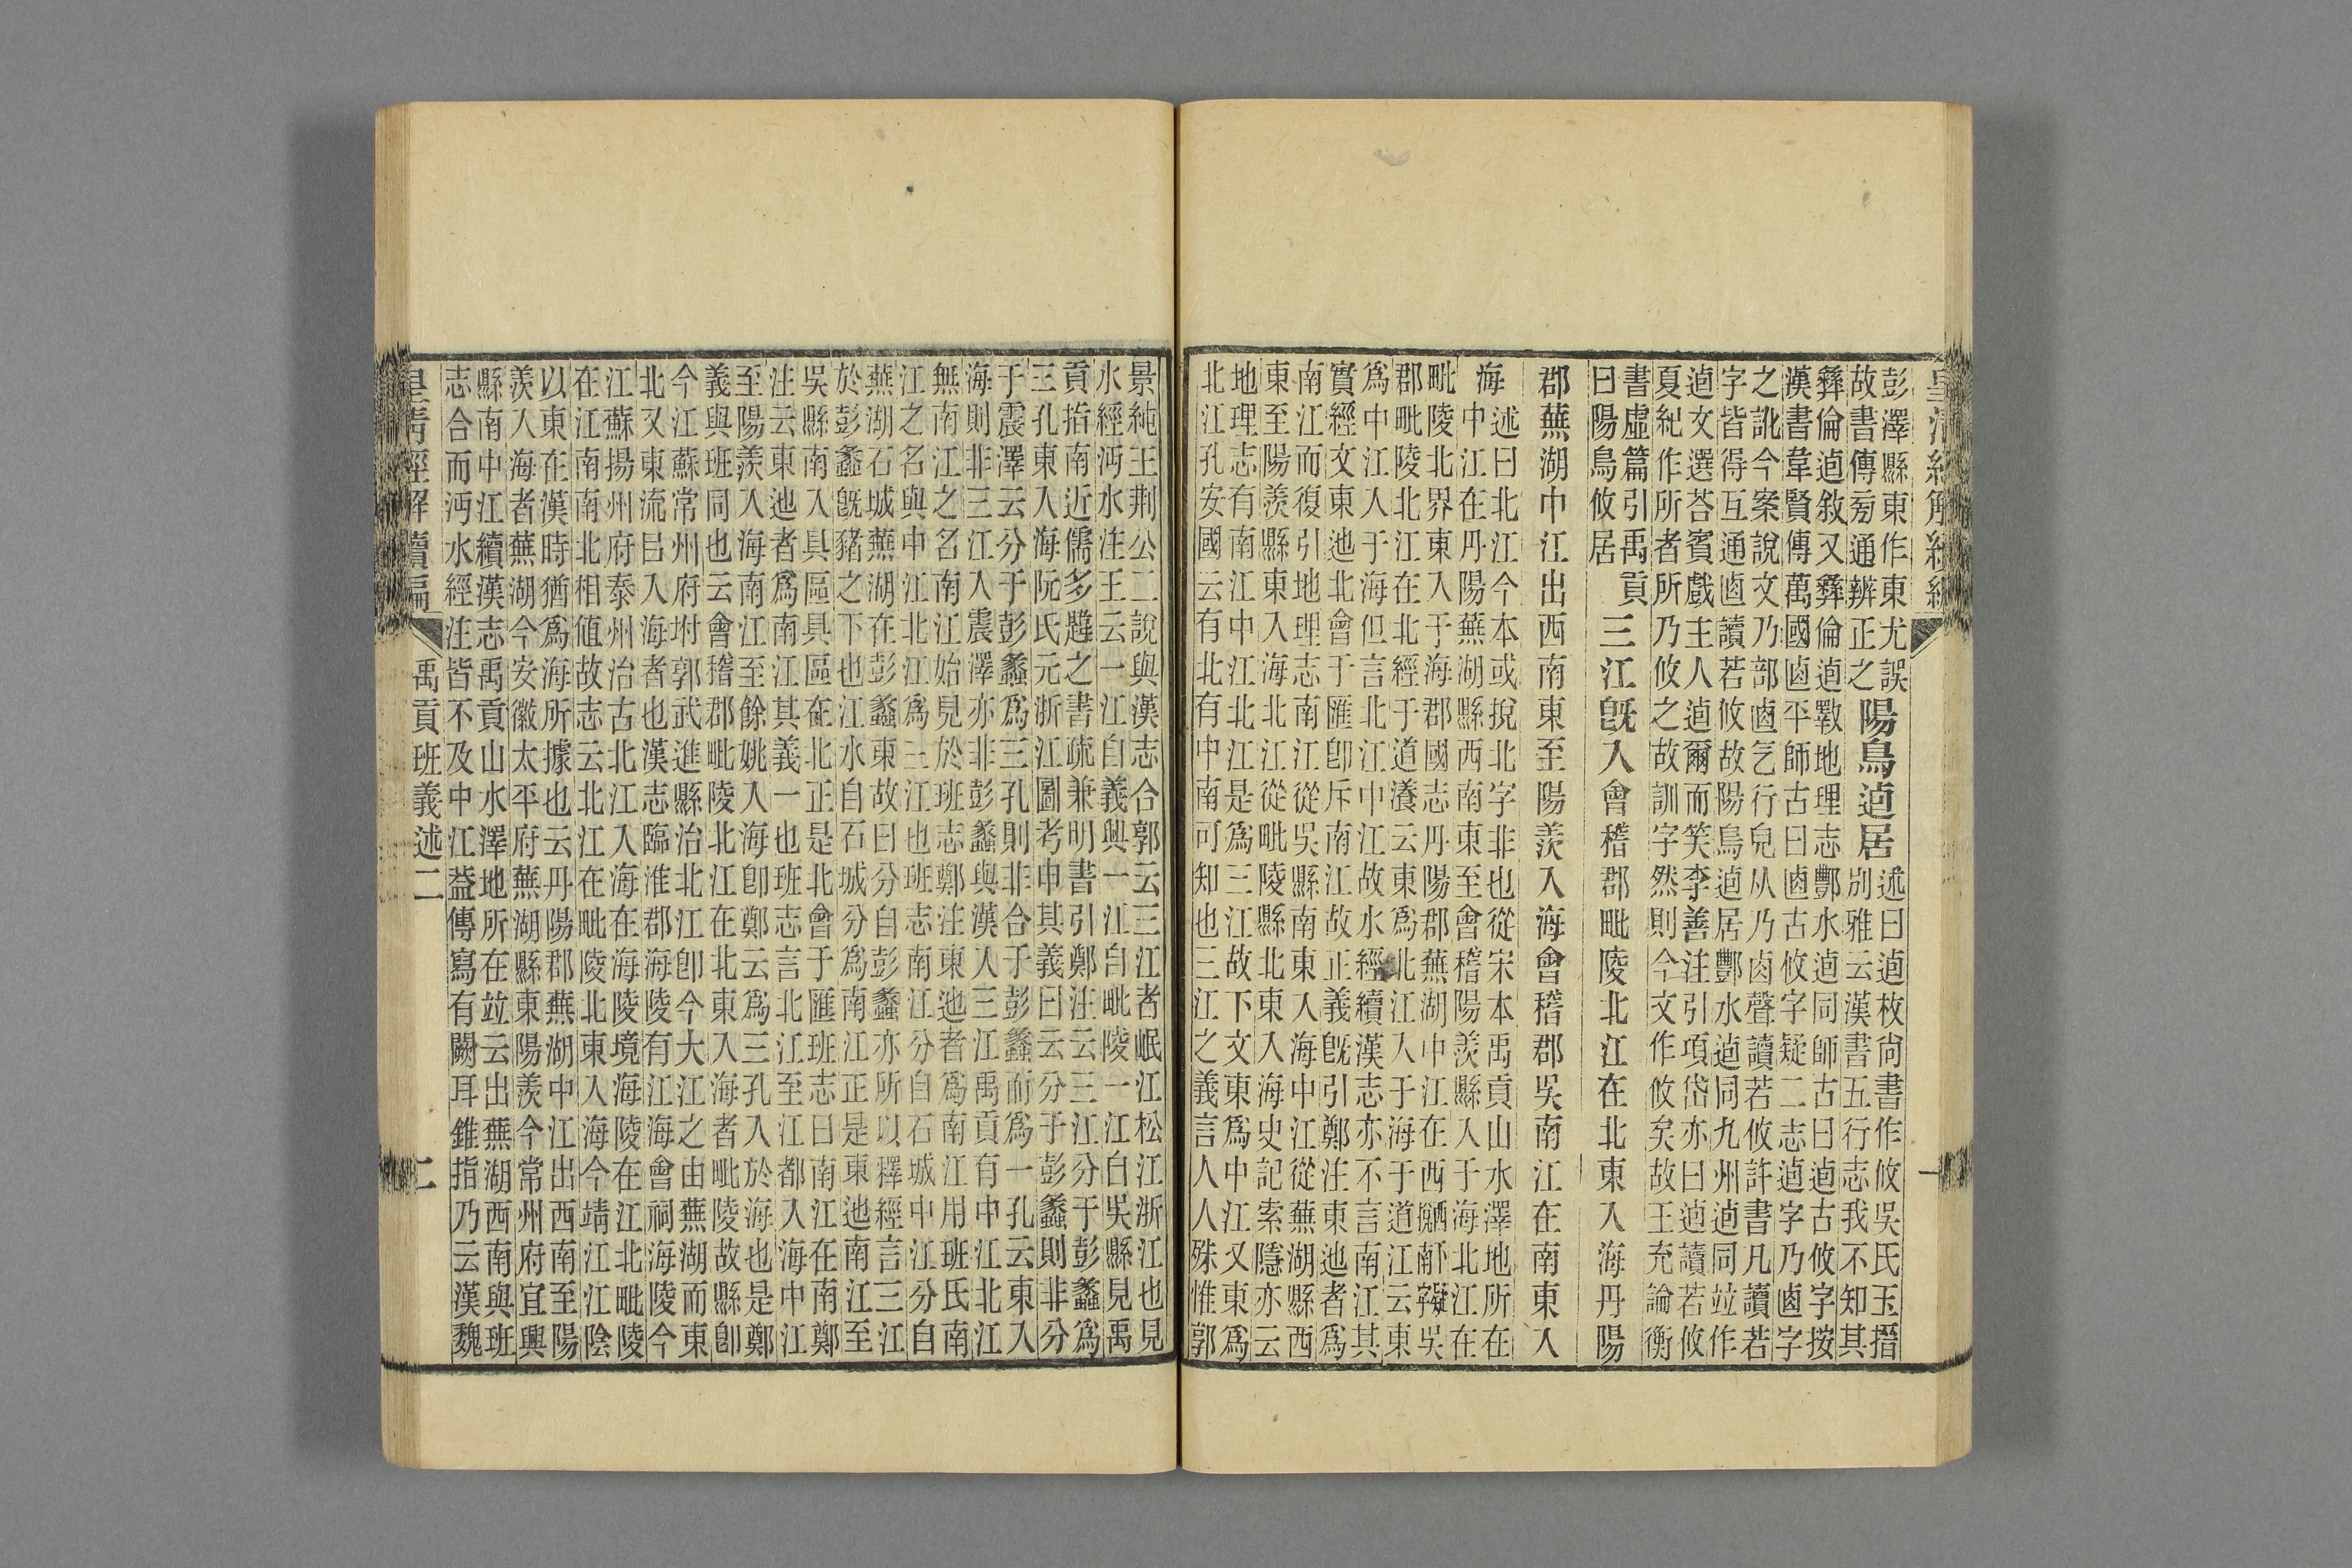 皇清經解續編 一
彭澤縣東作東尤誤
故書傳㫄通辨正之
陽鳥逌居
述曰逌枚尙書作攸吳氏玉搢
別雅云漢書五行志我不知其
彝倫逌敘又彝倫逌斁地理志酆水逌同師古曰逌古攸字按
漢書韋賢傳萬國卥平師古曰卥古攸字疑二志逌字乃卥字
之訛今案說文乃部卥气行皃从乃卥聲讀若攸許書凡讀若
字皆得互通卥讀若攸故陽鳥逌居酆水逌同九州逌同竝作
逌文選荅賓戲主人逌爾而笑李善注引項岱亦曰逌讀若攸
夏紀作所者所乃攸之故訓字然則今文作攸矣故王充論衡
書虛篇引禹貢
曰陽鳥攸居
三江旣入會稽郡毗陵北江在北東入海丹陽
郡蕪湖中江出西南東至陽羨入海會稽郡吳南江在南東入
海
述曰北江今本或捝北字非也從宋本禹貢山水澤地所在
中江在丹陽蕪湖縣西南東至會稽陽羨縣入于海北江在
毗陵北界東入于海郡國志丹陽郡蕪湖中江在西吳
郡毗陵北江在北經于道瀁云東爲北江入于海于道江云東
爲中江入于海但言北江中江故水經續漢志亦不言南江其
實經文東迆北會于匯卽斥南江故正義旣引鄭注東迆者爲
南江而復引地理志南江從吳縣南東入海中江從蕪湖縣西
東至陽羨縣東入海北江從毗陵縣北東入海史記索隱亦云
地理志有南江中江北江是爲三江故下文東爲中江又東爲
北江孔安國云有北有中南可知也三江之義言人人殊惟郭
景純王荆公二說與漢志合郭云三江者岷江松江浙江也見
水經沔水注王云一江自義興一江自毗陵一江自吳縣見禹
貢指南近儒多韙之書疏兼明書引鄭注云三江分于彭蠡爲
三孔東入海阮氏元浙江圖考申其義曰云分于彭蠡則非分
于震澤云分于彭蠡爲三孔則非合于彭蠡而爲一孔云東入
海則非三江入震澤亦非彭蠡與漢入三江禹貢有中江北江
無南江之名南江始見於班志鄭注東迆者爲南江用班氏南
江之名與中江北江爲三江也班志南江分自石城中江分自
蕪湖石城蕪湖在彭蠡東故曰分自彭蠡亦所以釋經言三江
於彭蠡旣豬之下也江水自石城分爲南江正是東迆南江至
吳縣南入具區具區在北正是北會于匯班志曰南江在南鄭
注云東迆者爲南江其義一也班志言北江至江都入海中江
至陽羨入海南江至餘姚入海卽鄭云爲三孔入於海也是鄭
義與班同也云會稽郡毗陵北江在北東入海者毗陵故縣卽
今江蘇常州府坿郭武進縣治北江卽今大江之由蕪湖而東
北又東流㠯入海者也漢志臨淮郡海陵有江海會祠海陵今
江蘇揚州府泰州治古北江入海在海陵境海陵在江北毗陵
在江南南北相値故志云北江在毗陵北東入海今靖江江陰
以東在漢時猶爲海所據也云丹陽郡蕪湖中江出西南至陽
羨入海者蕪湖今安徽太平府蕪湖縣東陽羨今常州府宜興
縣南中江續漢志禹貢山水澤地所在竝云出蕪湖西南與班
志合而沔水經注皆不及中江葢傳寫有闕耳錐指乃云漢魏
皇清經解續編 禹貢班義述二 二